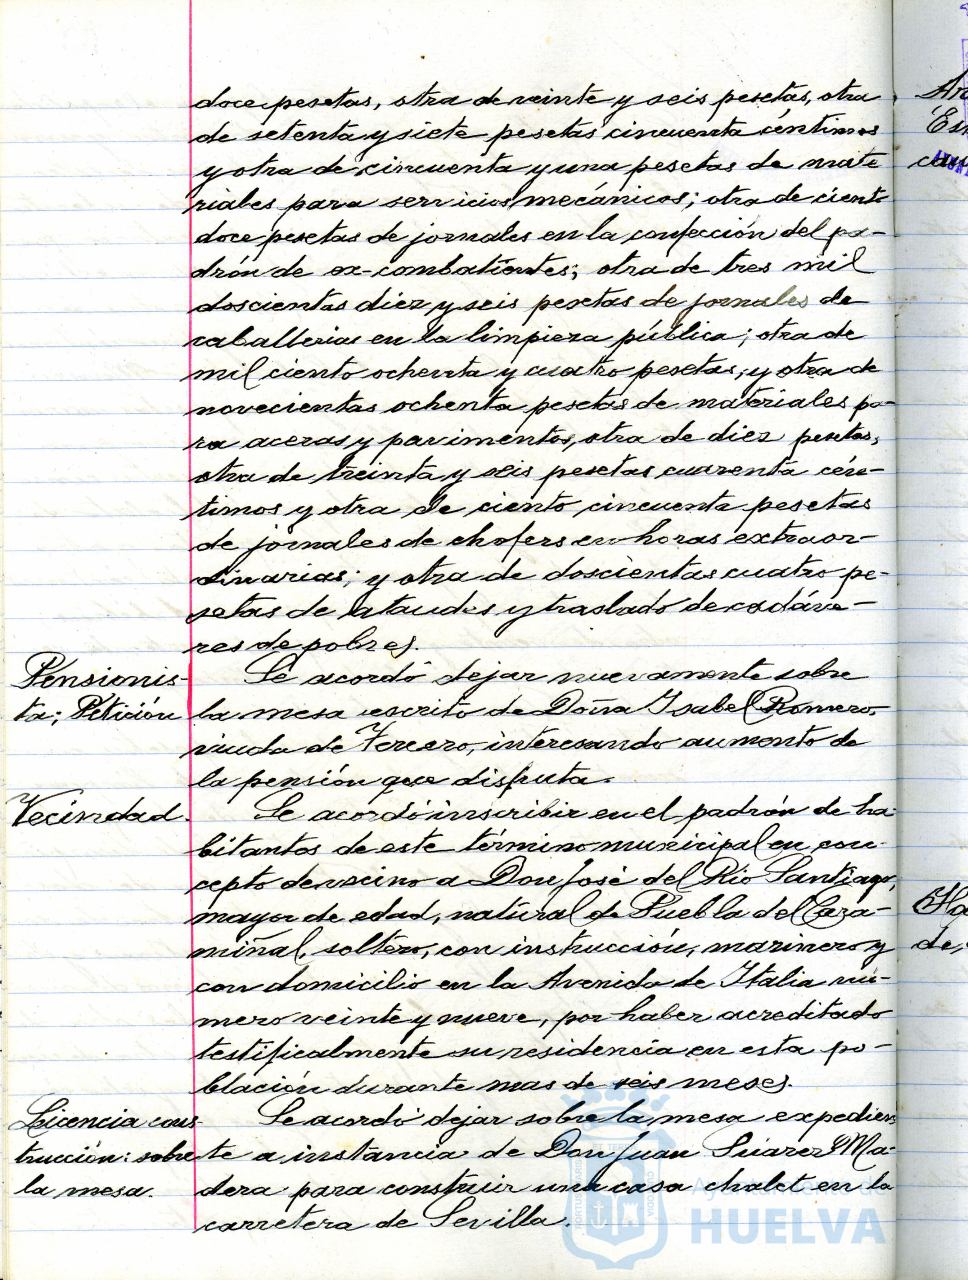 doce pesetas, otra de veinte y seis pesetas, otra
de setenta y siete pesetas cincuenta céntimos
y otra de cincuenta y una pesetas de mate
riales para servicios mecánicos; otra de ciento
doce pesetas de jornales en la confección del pa-
drón de ex-combatientes; otra de tres mil
doscientas diez y seis pesetas de jornales de
caballerias en la limpieza pública; otra de
mil ciento ochenta y cuatro pesetas, y otra de
novecientas ochenta pesetas de materiales pa-
ra aceras y pavimentos, otra de diez pesetas,
otra de treinta y seis pesetas cuarenta cén-
timos y otra de ciento cincuenta pesetas
de jornales de chofers en horas extraor-
dinarias; y otra de doscientas cuatro pe-
setas de ataudes y traslado de cadáve-
res de pobres.
Pensionis-
ta; Petición
Se acordó dejar nuevamente sobre
la mesa escrito de Doña Isabel Romero,
viuda de Tercero, interesando aumento de
la pensión que disfruta.
Vecindad.
Se acordó inscribir en el padrón de ha-
bitantes de este término municipal en con-
cepto de vecino a Don José del Río Santiago,
mayor de edad, natural de Puebla del Cara-
miñal, soltero, con instrucción, marinero y
con domicilio en la Avenida de Italia nú-
mero veinte y nueve, por haber acreditado
testificalmente su residencia en esta po-
blación durante mas de seis meses.
Licencia cons-
trucción: sobre
la mesa.
Se acordó dejar sobre la mesa expedien
te a instancia de Don Juan Suárez Ma-
dera para construir una casa chalet en la
carretera de Sevilla.
Ayuntamiento de
HUELVA